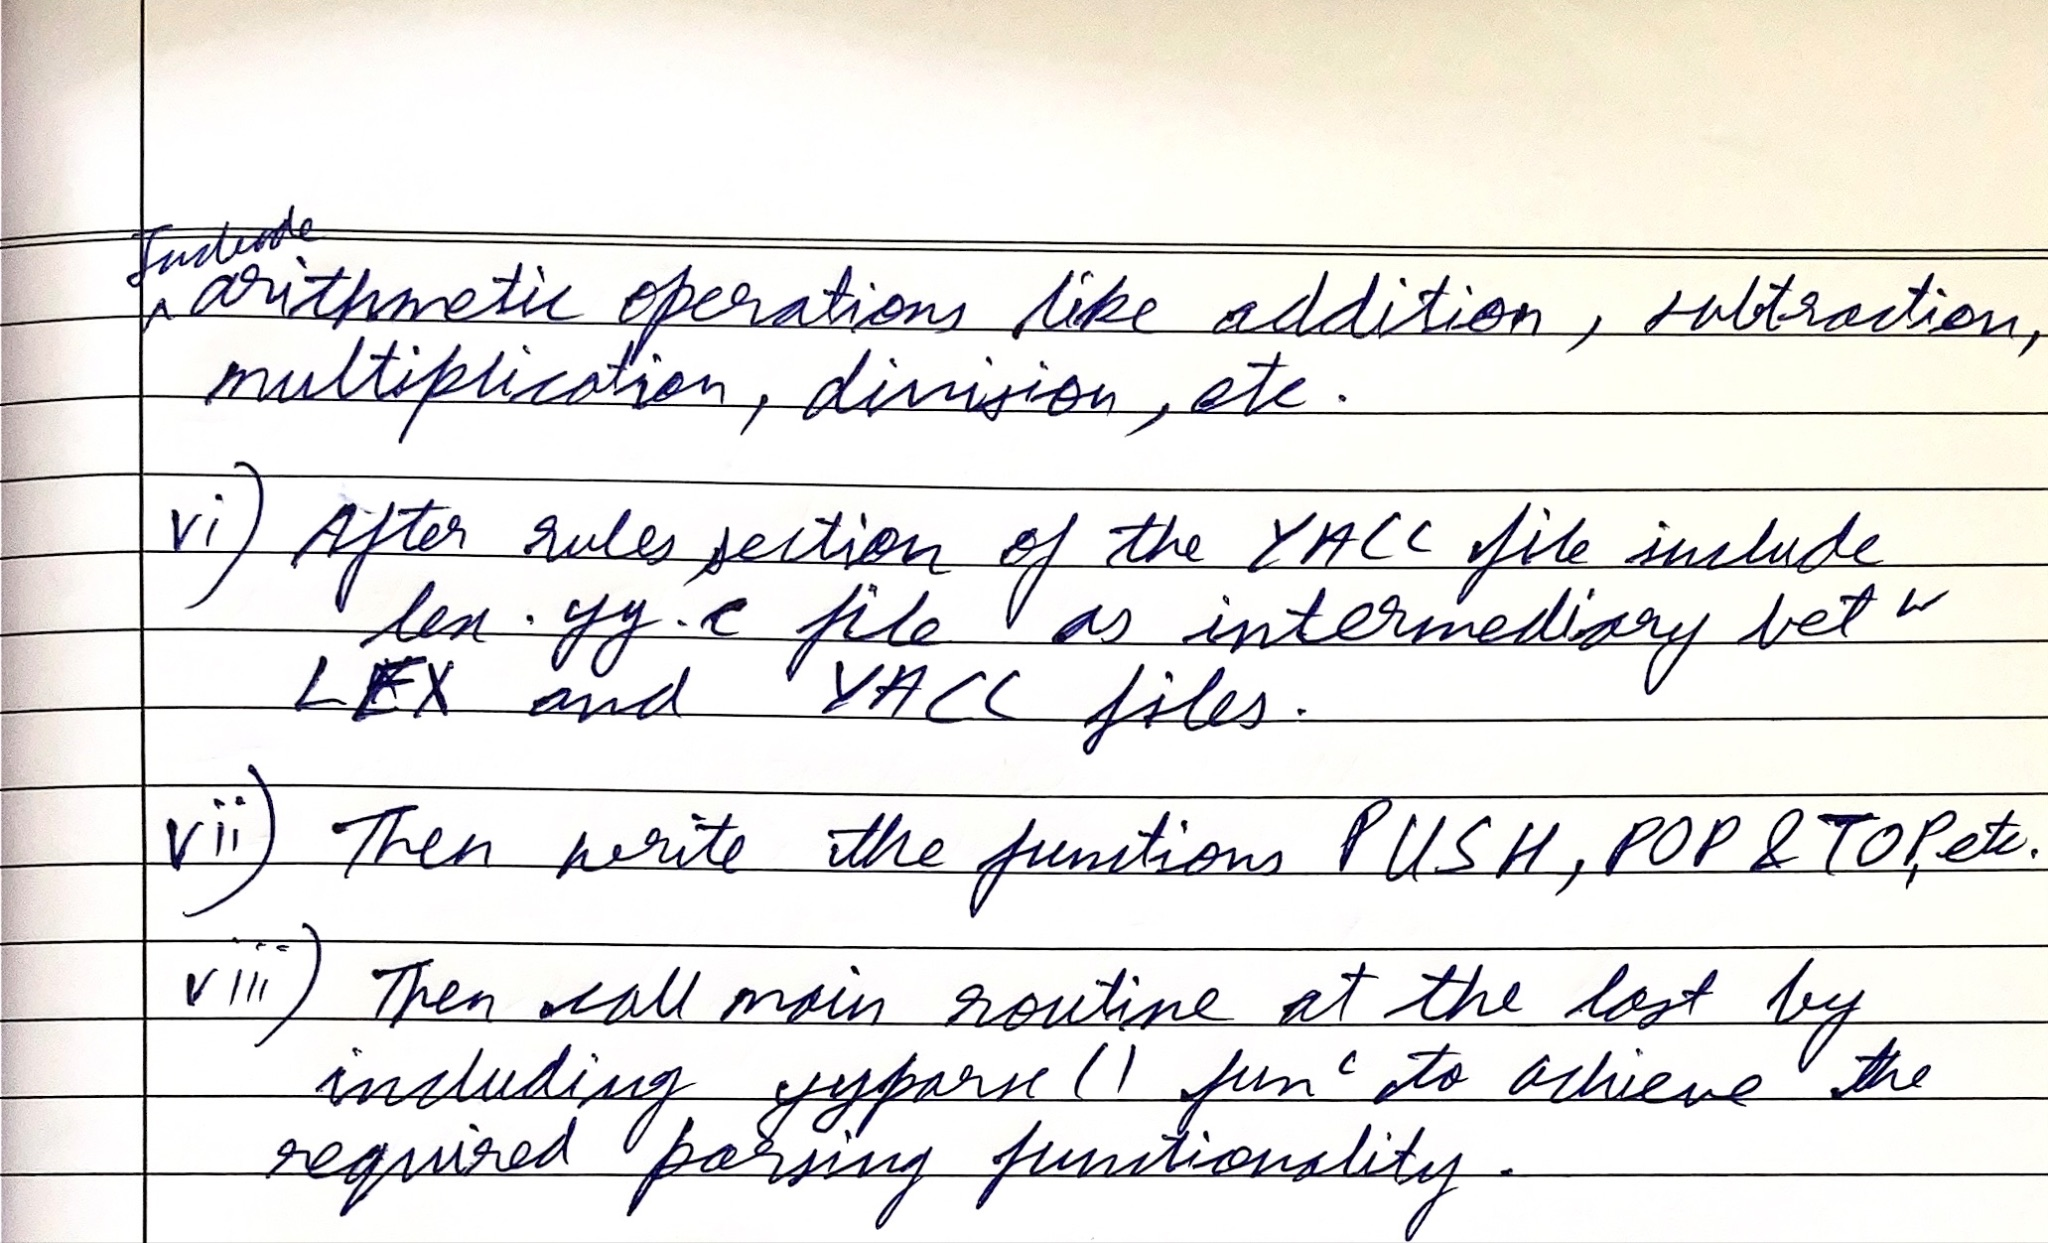 Include
^ arithmetic operations like addition, subtraction,
multiplication, division, etc.
vi) After rules section of the YACC file include
lex.yy.c file as intermediary betw
LEX and YACC files.
vii) Then write the functions PUSH, POP & TOP, etc.
viii) Then call main routine at the last by
including yyparse() func to achieve the
required parsing functionality.